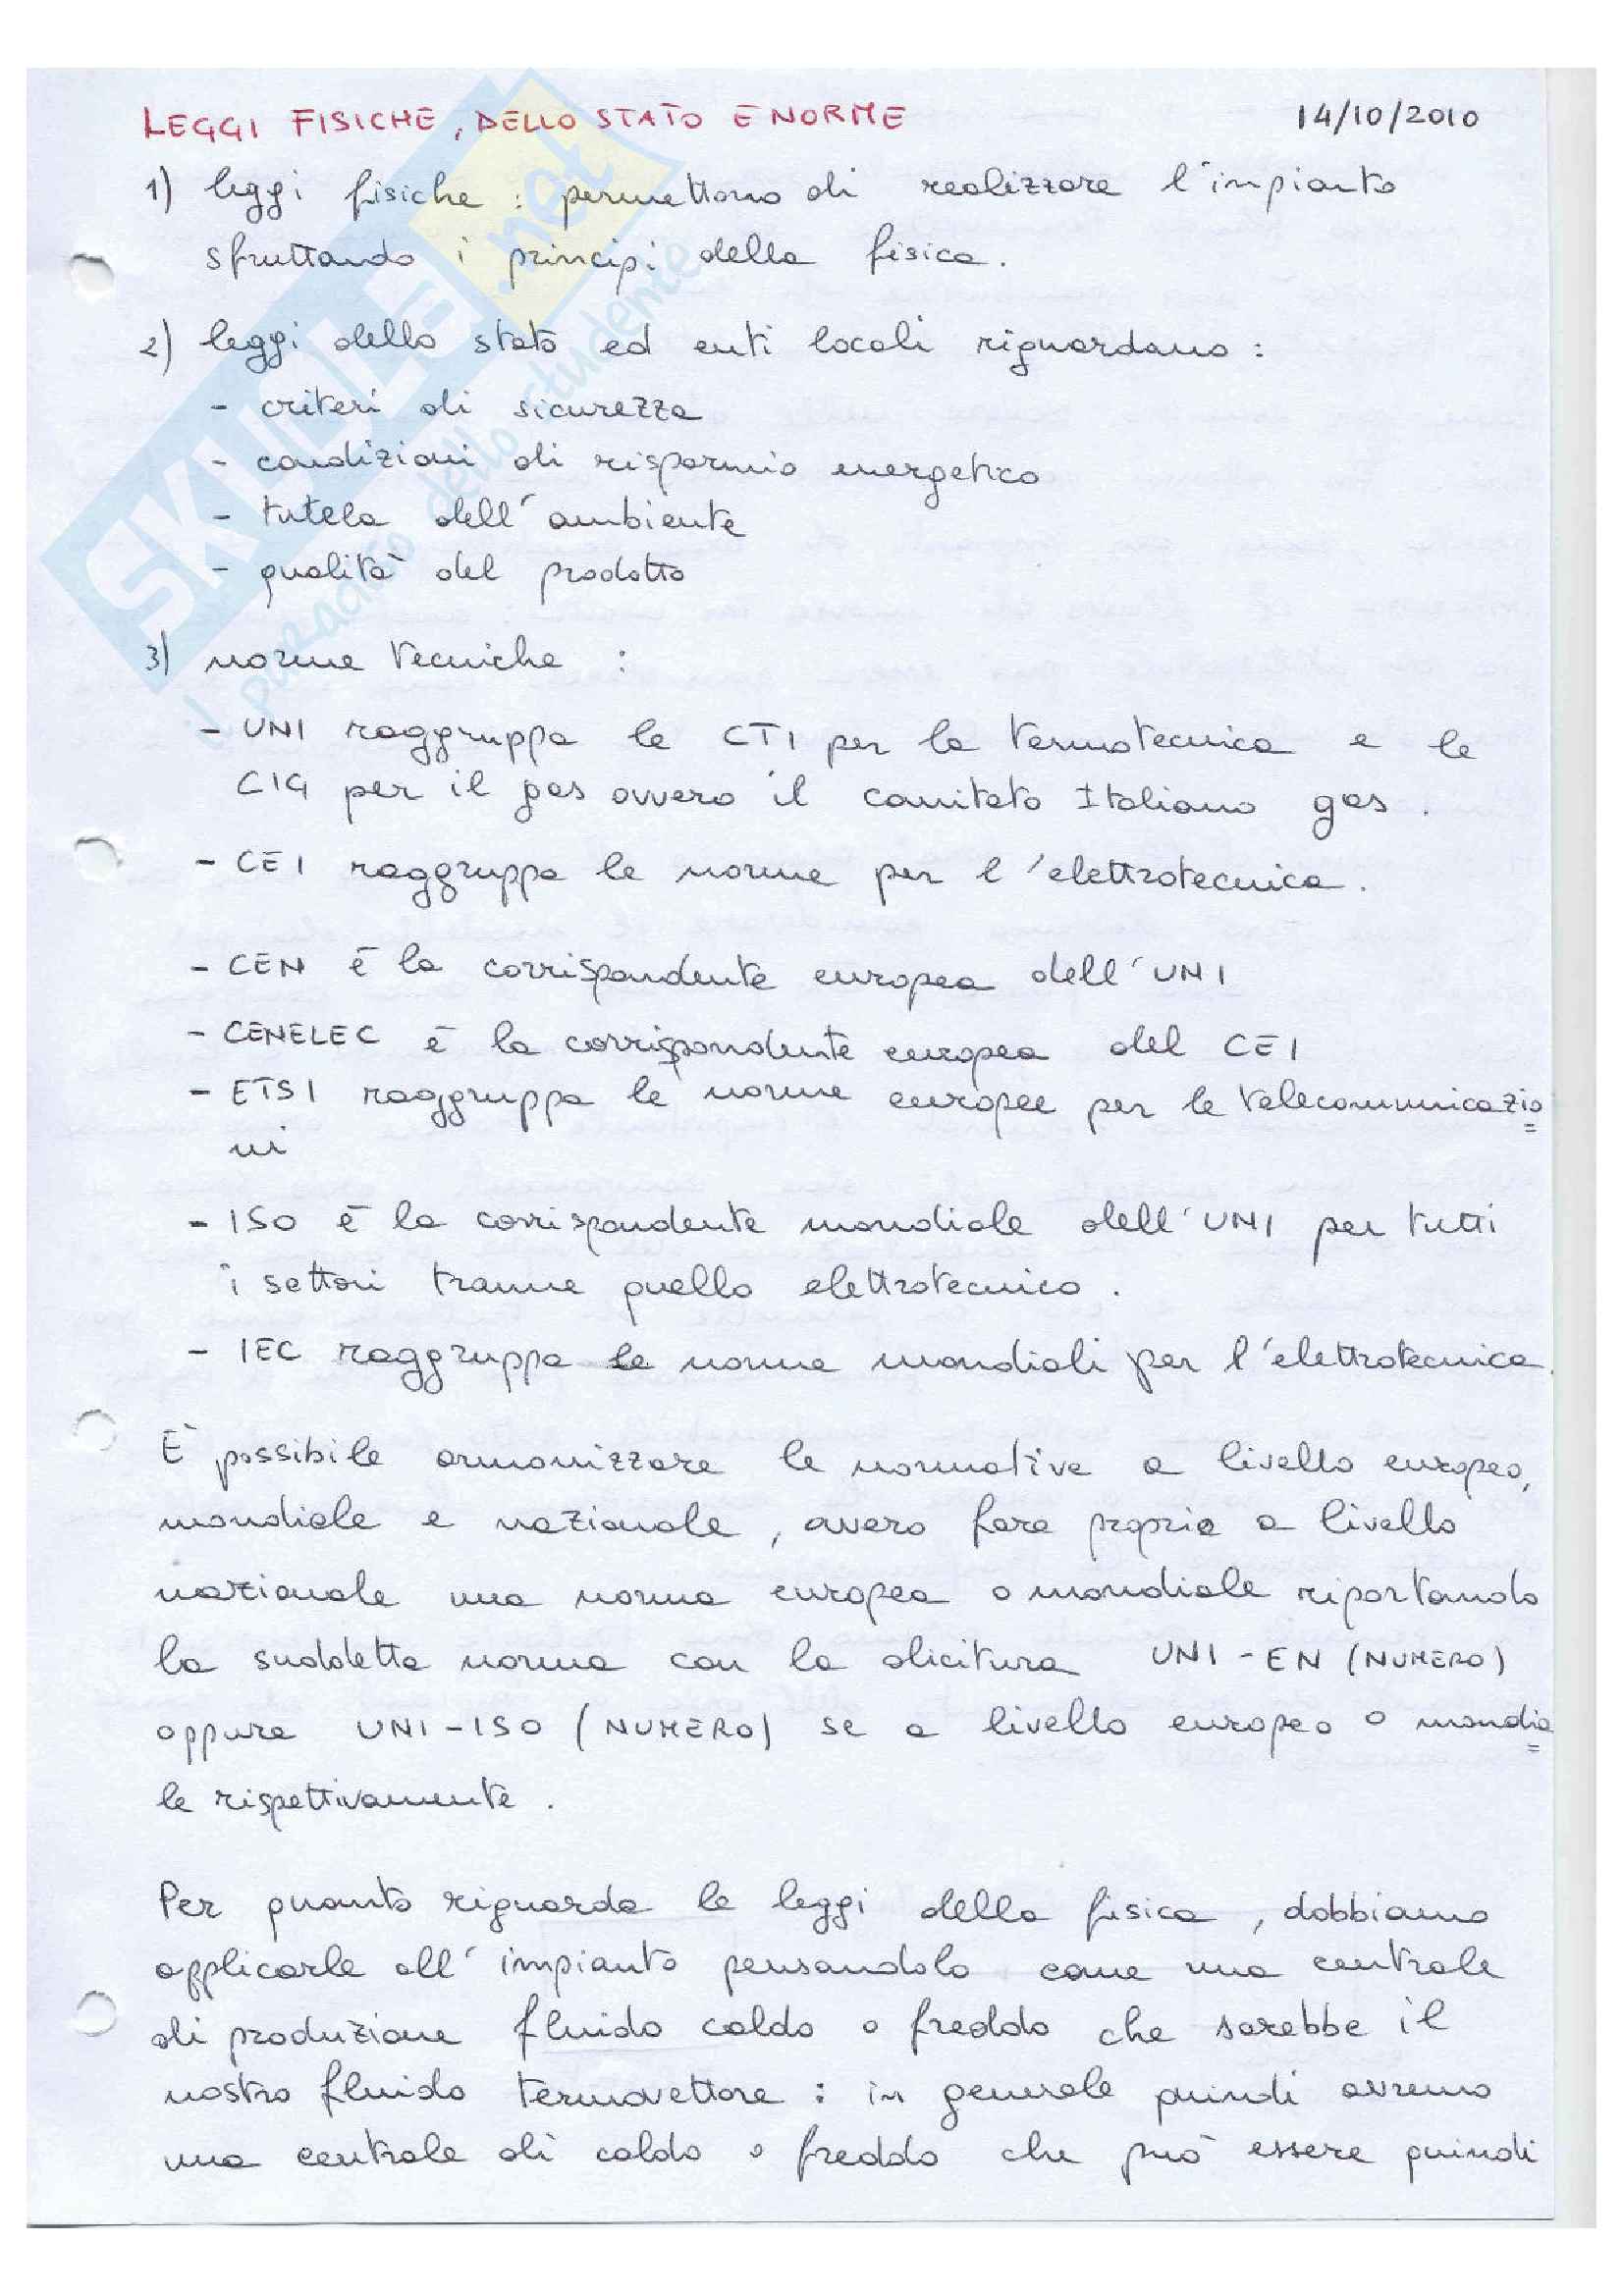 LEGGI FISICHE, DELLO STATO E NORME 14/10/2010
1) leggi fisiche : permettono di realizzare l'impianto
sfruttando i principi della fisica.
2) leggi dello stato ed enti locali riguardano :
- criteri di sicurezza
- condizioni di risparmio energetico
- tutela dell'ambiente
- qualità del prodotto
3) norme tecniche :
- UNI raggruppa le CTI per la termotecnica e le
CIG per il gas ovvero il comitato Italiano gas .
- CEI raggruppa le norme per l'elettrotecnica.
- CEN è la corrispondente europea dell'UNI
- CENELEC è la corrispondente europea del CEI
- ETSI raggruppa le norme europee per le telecomunicazio
ni
- ISO è la corrispondente mondiale dell'UNI per tutti
i settori tranne quello elettrotecnico .
- IEC raggruppa le norme mondiali per l'elettrotecnica.
E' possibile armonizzare le normative a livello europeo,
mondiale e nazionale , ovvero fare propria a livello
nazionale una norma europea o mondiale riportando
la suddetta norma con la dicitura UNI - EN (NUMERO)
oppure UNI - ISO (NUMERO) se a livello europeo o mondia
le rispettivamente .
Per quanto riguarda le leggi della fisica , dobbiamo
applicarle all'impianto pensandolo come una centrale
di produzione fluido caldo o freddo che sarebbe il
nostro fluido termovettore : in generale quindi avremo
una centrale di caldo o freddo che può essere quindi
SKUOLA.net
il paradiso dello studente